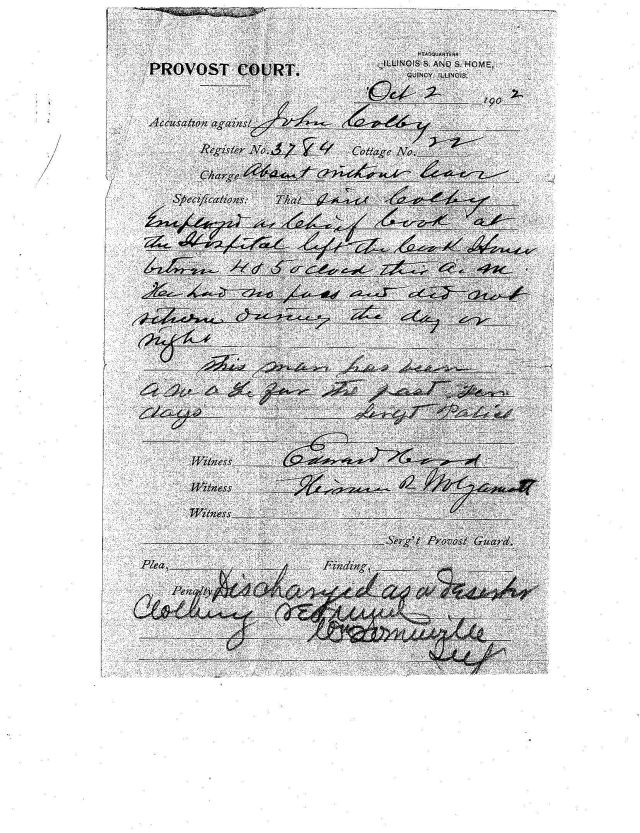 HEADQUARTERS
PROVOST COURT. ILLINOIS S. AND S. HOME,
QUINCY, ILLINOIS.
Oct 2 1902
Accusation against John Colby
Register No. 3784 Cottage No. 22
Charge Absent without leave
Specifications: That said Colby
Employed as Chief Cook at
the Hospital left the Cook House
between 4 & 5 oclock this A.M.
He had no pass and did not
return during the day or
night
This man has been
A W O L for the past ten
days Sergt Police
Witness Edward Hood
Witness
Witness
Serg't Provost Guard.
Plea, Finding,
Penalty Discharged as a Deserter
Clothing returned
Wm Somerville
Supt